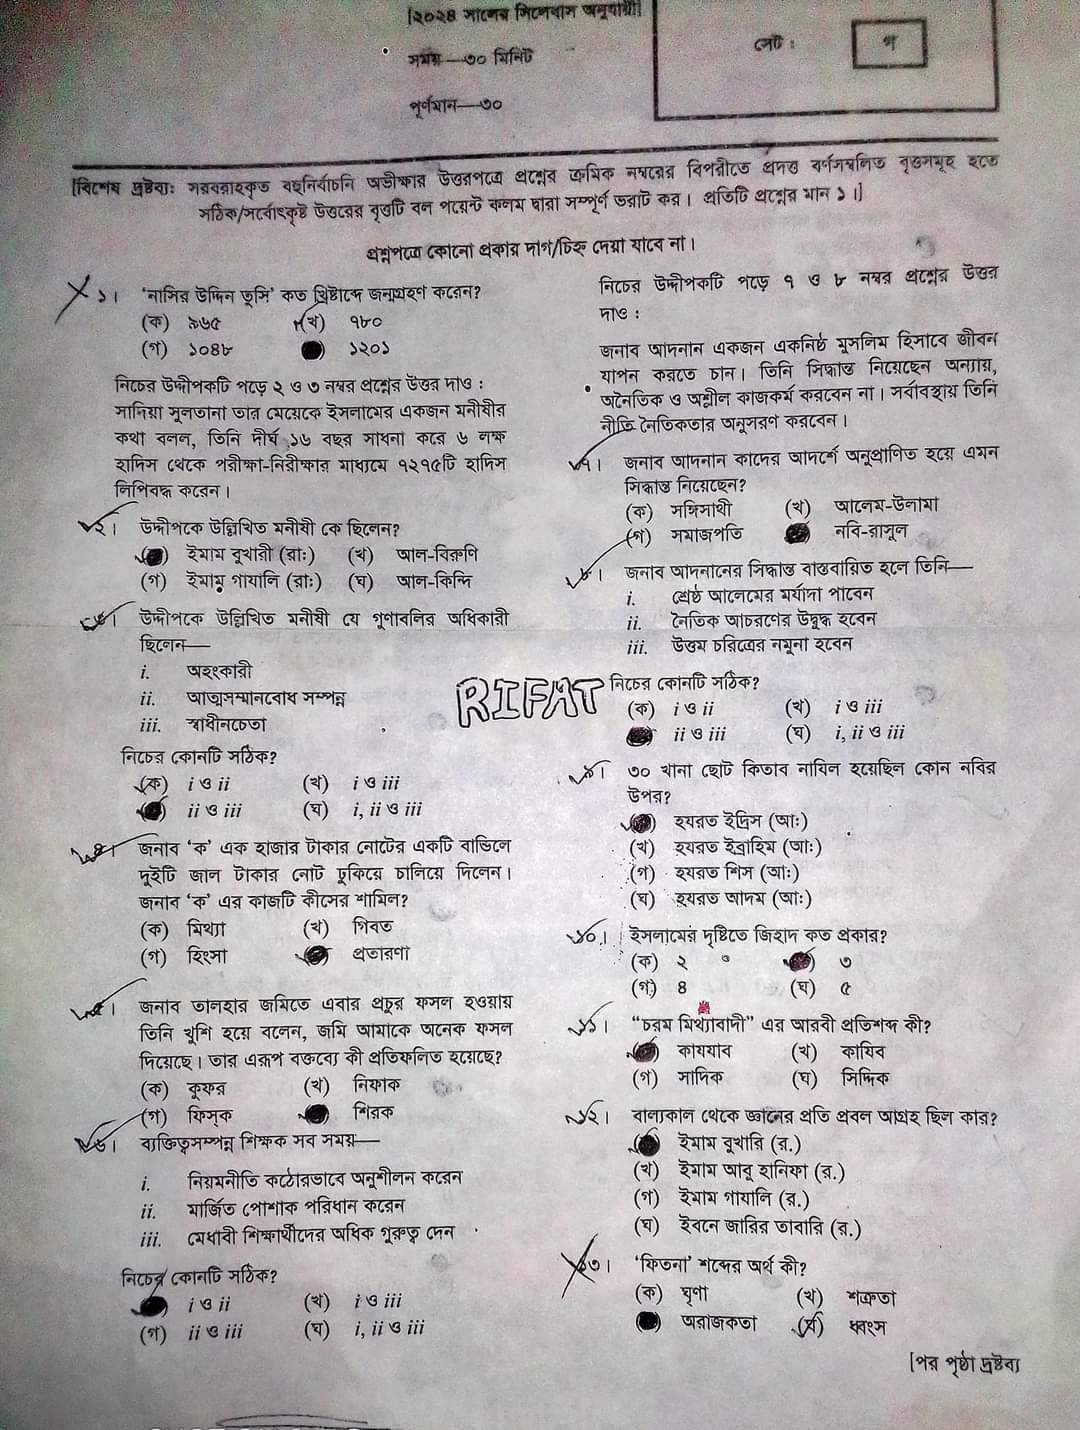 [২০২৪ সালের সিলেবাস অনুযায়ী]
সময়—৩০ মিনিট
পূর্ণমান—৩০
সেট :
গ
[বিশেষ দ্রষ্টব্য: সরবরাহকৃত বহুনির্বাচনি অভীক্ষার উত্তরপত্রে প্রশ্নের ক্রমিক নম্বরের বিপরীতে প্রদত্ত বর্ণসম্বলিত বৃত্তসমূহ হতে
সঠিক/সর্বোৎকৃষ্ট উত্তরের বৃত্তটি বল পয়েন্ট কলম দ্বারা সম্পূর্ণ ভরাট কর। প্রতিটি প্রশ্নের মান ১।]
প্রশ্নপত্রে কোনো প্রকার দাগ/চিহ্ন দেয়া যাবে না।
১। ‘নাসির উদ্দিন তুসি’ কত খ্রিষ্টাব্দে জন্মগ্রহণ করেন?
(ক) ৯৬৫ (খ) ৭৮০
(গ) ১০৪৮ ১২০১
নিচের উদ্দীপকটি পড়ে ২ ও ৩ নম্বর প্রশ্নের উত্তর দাও :
সাদিয়া সুলতানা তার মেয়েকে ইসলামের একজন মনীষীর
কথা বলল, তিনি দীর্ঘ ১৬ বছর সাধনা করে ৬ লক্ষ
হাদিস থেকে পরীক্ষা-নিরীক্ষার মাধ্যমে ৭২৭৫টি হাদিস
লিপিবদ্ধ করেন।
২। উদ্দীপকে উল্লিখিত মনীষী কে ছিলেন?
ইমাম বুখারী (রাঃ) (খ) আল-বিরুণি
(গ) ইমাম গাযালি (রাঃ) (ঘ) আল-কিন্দি
৩। উদ্দীপকে উল্লিখিত মনীষী যে গুণাবলির অধিকারী
ছিলেন—
i. অহংকারী
ii. আত্মসম্মানবোধ সম্পন্ন
iii. স্বাধীনচেতা
নিচের কোনটি সঠিক?
(ক) i ও ii (খ) i ও iii
ii ও iii (ঘ) i, ii ও iii
৪। জনাব ‘ক’ এক হাজার টাকার নোটের একটি বান্ডিলে
দুইটি জাল টাকার নোট ঢুকিয়ে চালিয়ে দিলেন।
জনাব ‘ক’ এর কাজটি কীসের শামিল?
(ক) মিথ্যা (খ) গিবত
(গ) হিংসা প্রতারণা
৫। জনাব তালহার জমিতে এবার প্রচুর ফসল হওয়ায়
তিনি খুশি হয়ে বলেন, জমি আমাকে অনেক ফসল
দিয়েছে। তার এরূপ বক্তব্যে কী প্রতিফলিত হয়েছে?
(ক) কুফর (খ) নিফাক
(গ) ফিস্ক শিরক
৬। ব্যক্তিত্বসম্পন্ন শিক্ষক সব সময়—
i. নিয়মনীতি কঠোরভাবে অনুশীলন করেন
ii. মার্জিত পোশাক পরিধান করেন
iii. মেধাবী শিক্ষার্থীদের অধিক গুরুত্ব দেন
নিচের কোনটি সঠিক?
i ও ii (খ) i ও iii
(গ) ii ও iii (ঘ) i, ii ও iii
RIFAT
নিচের উদ্দীপকটি পড়ে ৭ ও ৮ নম্বর প্রশ্নের উত্তর
দাও :
জনাব আদনান একজন একনিষ্ঠ মুসলিম হিসাবে জীবন
যাপন করতে চান। তিনি সিদ্ধান্ত নিয়েছেন অন্যায়,
অনৈতিক ও অশ্লীল কাজকর্ম করবেন না। সর্বাবস্থায় তিনি
নীতি নৈতিকতার অনুসরণ করবেন।
৭। জনাব আদনান কাদের আদর্শে অনুপ্রাণিত হয়ে এমন
সিদ্ধান্ত নিয়েছেন?
(ক) সঙ্গিসাথী (খ) আলেম-উলামা
(গ) সমাজপতি নবি-রাসূল
৮। জনাব আদনানের সিদ্ধান্ত বাস্তবায়িত হলে তিনি—
i. শ্রেষ্ঠ আলেমের মর্যাদা পাবেন
ii. নৈতিক আচরণের উদ্বুদ্ধ হবেন
iii. উত্তম চরিত্রের নমুনা হবেন
নিচের কোনটি সঠিক?
(ক) i ও ii (খ) i ও iii
ii ও iii (ঘ) i, ii ও iii
৯। ৩০ খানা ছোট কিতাব নাযিল হয়েছিল কোন নবির
উপর?
হযরত ইদ্রিস (আঃ)
(খ) হযরত ইব্রাহিম (আঃ)
(গ) হযরত শিস (আঃ)
(ঘ) হযরত আদম (আঃ)
১০। ইসলামের দৃষ্টিতে জিহাদ কত প্রকার?
(ক) ২ ৩
(গ) ৪ (ঘ) ৫
১১। “চরম মিথ্যাবাদী” এর আরবী প্রতিশব্দ কী?
কাযযাব (খ) কাযিব
(গ) সাদিক (ঘ) সিদ্দিক
১২। বাল্যকাল থেকে জ্ঞানের প্রতি প্রবল আগ্রহ ছিল কার?
ইমাম বুখারি (র.)
(খ) ইমাম আবু হানিফা (র.)
(গ) ইমাম গাযালি (র.)
(ঘ) ইবনে জারির তাবারি (র.)
১৩। ‘ফিতনা’ শব্দের অর্থ কী?
(ক) ঘৃণা (খ) শত্রুতা
অরাজকতা (ঘ) ধ্বংস
[পর পৃষ্ঠা দ্রষ্টব্য